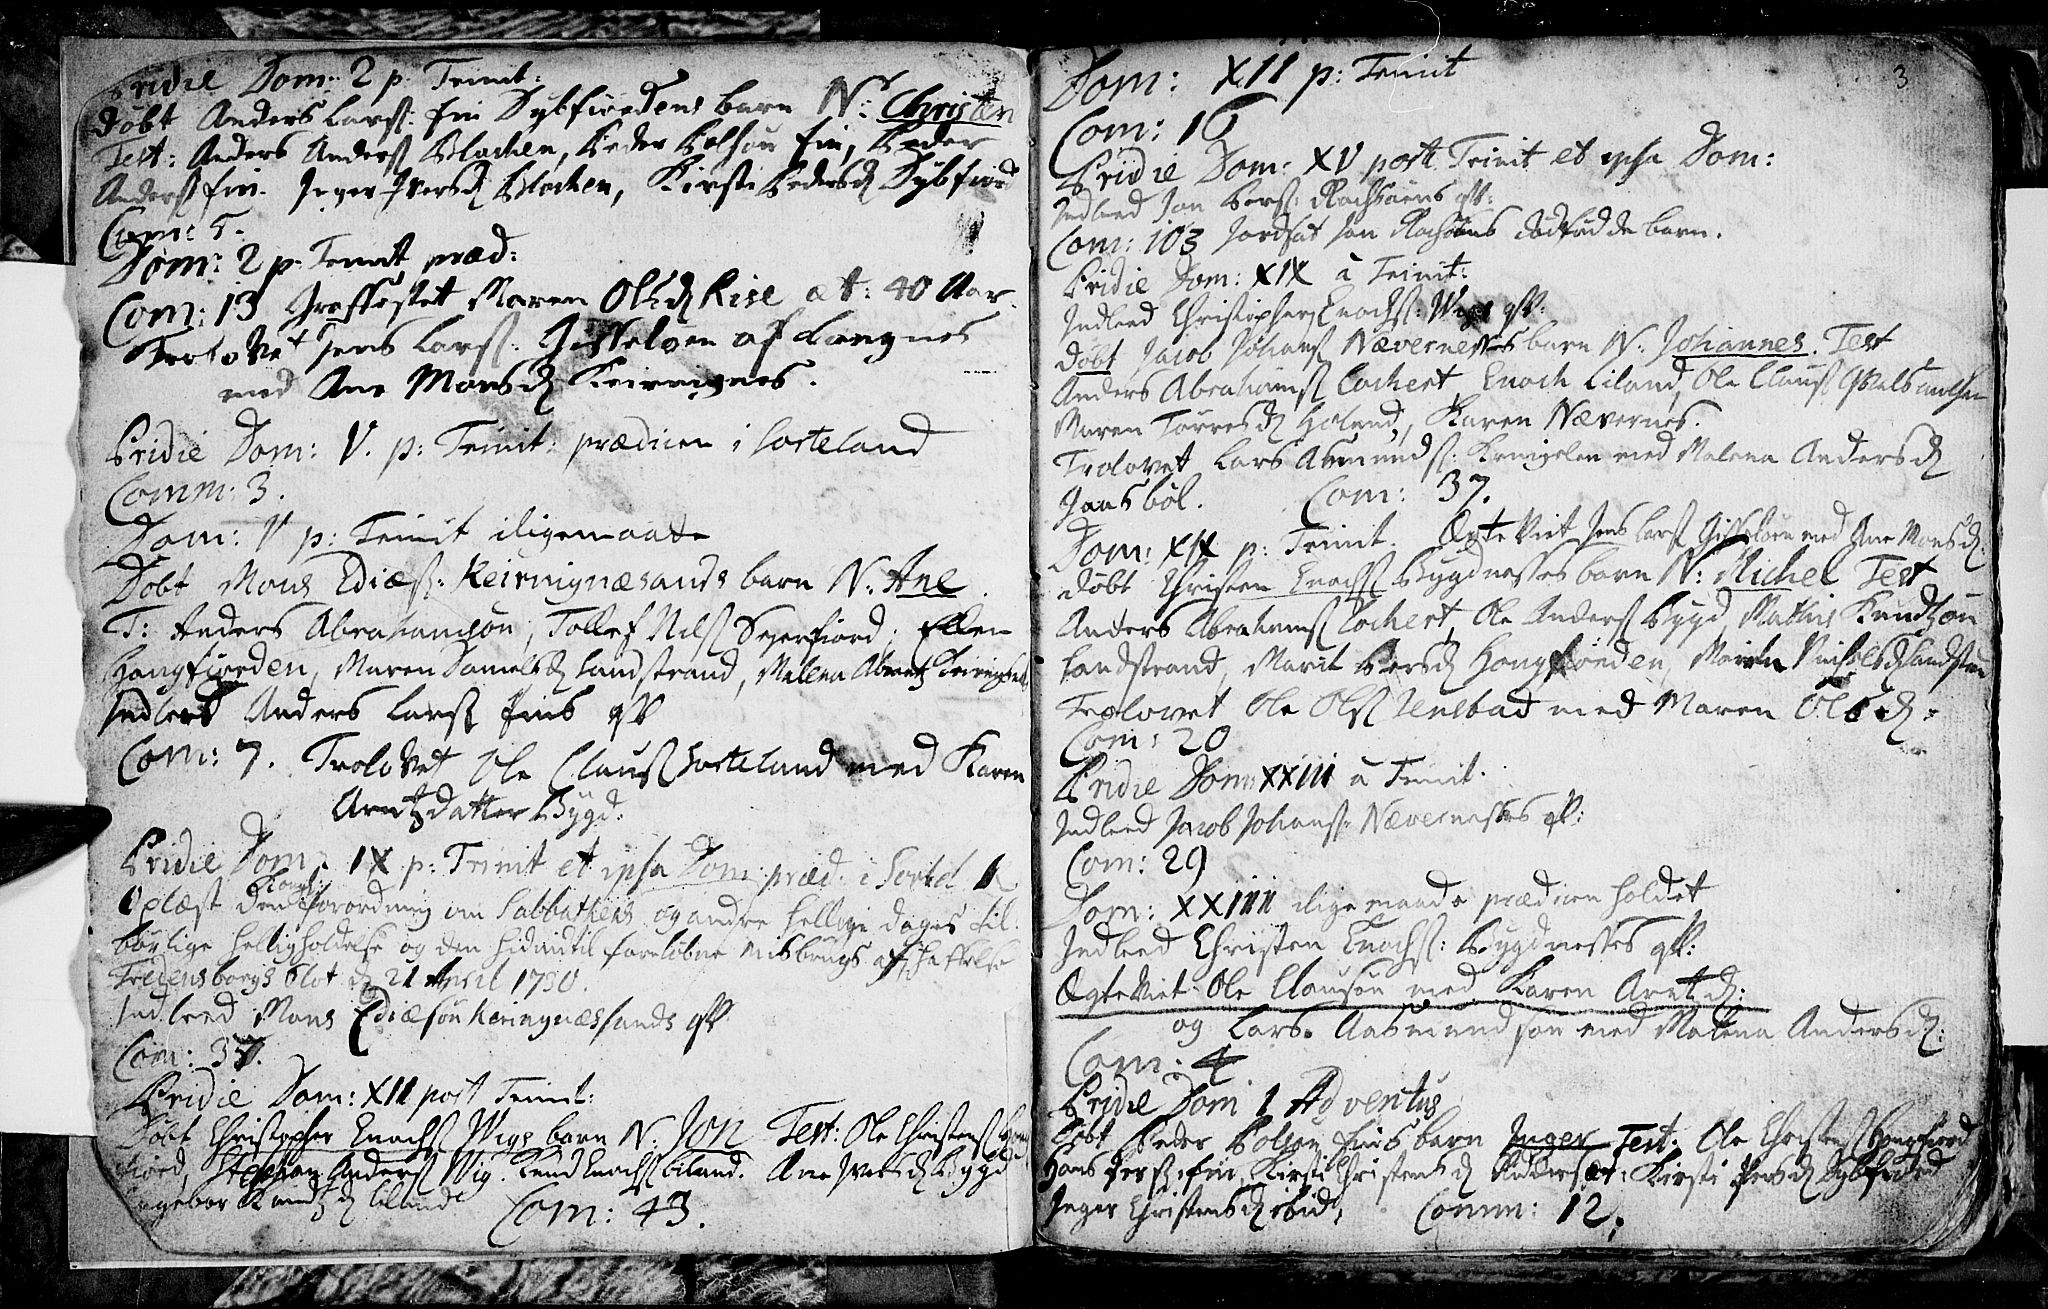 Pridie Dom: 2 p. Trinit:
Döbt Anders Larsß: fin Dybfiordens barn N: Christen
Test: Anders Andersß Blochen, Peder Polsøn fin, Peder
Andersß fin. Inger Iversd Blochen, Kirsti Pedersd Dybfiord
Com: 5.
Dom: 2 p. Trinit præd:
Com: 13 Græffestet Maren Olsd Rise æt: 40 Aar.
Trolovet Jens Larsß: Gisseløen af Langnes
med Ane Monsd Keiringnes.
Pridie Dom: V. p: Trinit: prædicen i Sorteland
Comm: 3.
Dom: V p: Trinit iligemaade
Döbt Mons Ediæsß: Keiringnæsands barn N: Ane.
T: Anders Abrahamsøn, Tollef Nilsß Sejerfiord, Ellen
Hongfiorden, Maren Danielsd Sandstrand, Malena
Indleed Anders Larsß fins qv
Com: 7. Trolovet Ole Clausß Sorteland med Karen
Arntzdatter Bygd.
Pridie Dom: IX p: Trinit et ipsa Dom præd: i Sortel
Oplæst den forordning om Sabbathens og andre hellige dages til
börlige helligholdelse og den hidindtil forelöbne misbrugs afskaffelse
Fredensborgs Slot d 21 April 1730.
Indleed Mons Ediæsøn Keiringnæssands qv
Com: 37.
Pridie Dom: XII post Trinit:
Döbt Christopher Enochsß Wigs barn N: Jon Test: Ole Christensß Hong
fiord, Stephan Andersß Wig. Knud Enochsß Liland. Ane Iversd Bygd
Ingebor Kundtzd Liland Com: 43.
3
Dom: XII p: Trinit
Com: 16
Pridie Dom: XV post Trinit et ipsa Dom:
Indleed Jon Persß: qv:
Com: 103 Jordsat Jon dödfödde barn.
Pridie Dom: XIX à Trinit:
Indleed Christopher Enochsß: Wigs qv:
Döbt Jacob Johansß Nævernesses barn N: Johannes. Test
Anders Abrahamsß Lochert, Enoch Liland, Ole Clausß
Maren Torresd Holand, Karen Nævernes.
Trolovet Lars Asmundsß: Kringelen med Malena Andersd
Jaasböl. Com: 37.
Dom: XIX p: Trinit. Ægteviet Jens Larsß Gisseløen med Ane Monsd.
Döbt Christen Enochsß Bygdnesses barn N: Michel Test
Anders Abrahamsß Lochert, Ole Andersß Bygd, Mathis Knudsøn
Sandstrand, Marit Persd Hongfiorden, Maren Nichelsd Sandstran
Trolovet Ole Olsß Jensbad med Maren Olsd.
Com: 20
Pridie Dom: XXIII à Trinit.
Indleed Jacob Johansß Nævernesses qv:
Com: 29
Dom: XXIIII iligemaade prædicen holdet
Indleed Christen Enochsß: Bygdnesses qv:
Ægteviet Ole Clausøn med Karen Arntzd:
og Lars Aasmundsøn med Malena Andersd:
Com: 4
Pridie Dom 1 Adventus
Döbt Peder Polsøn fins barn Inger Test: Ole Christensß Hongfiord
Hans Persß: fin, Kirsti Christensd Kirsti Persd Dybfiord
Inger Christensd ibid, Comm: 12.